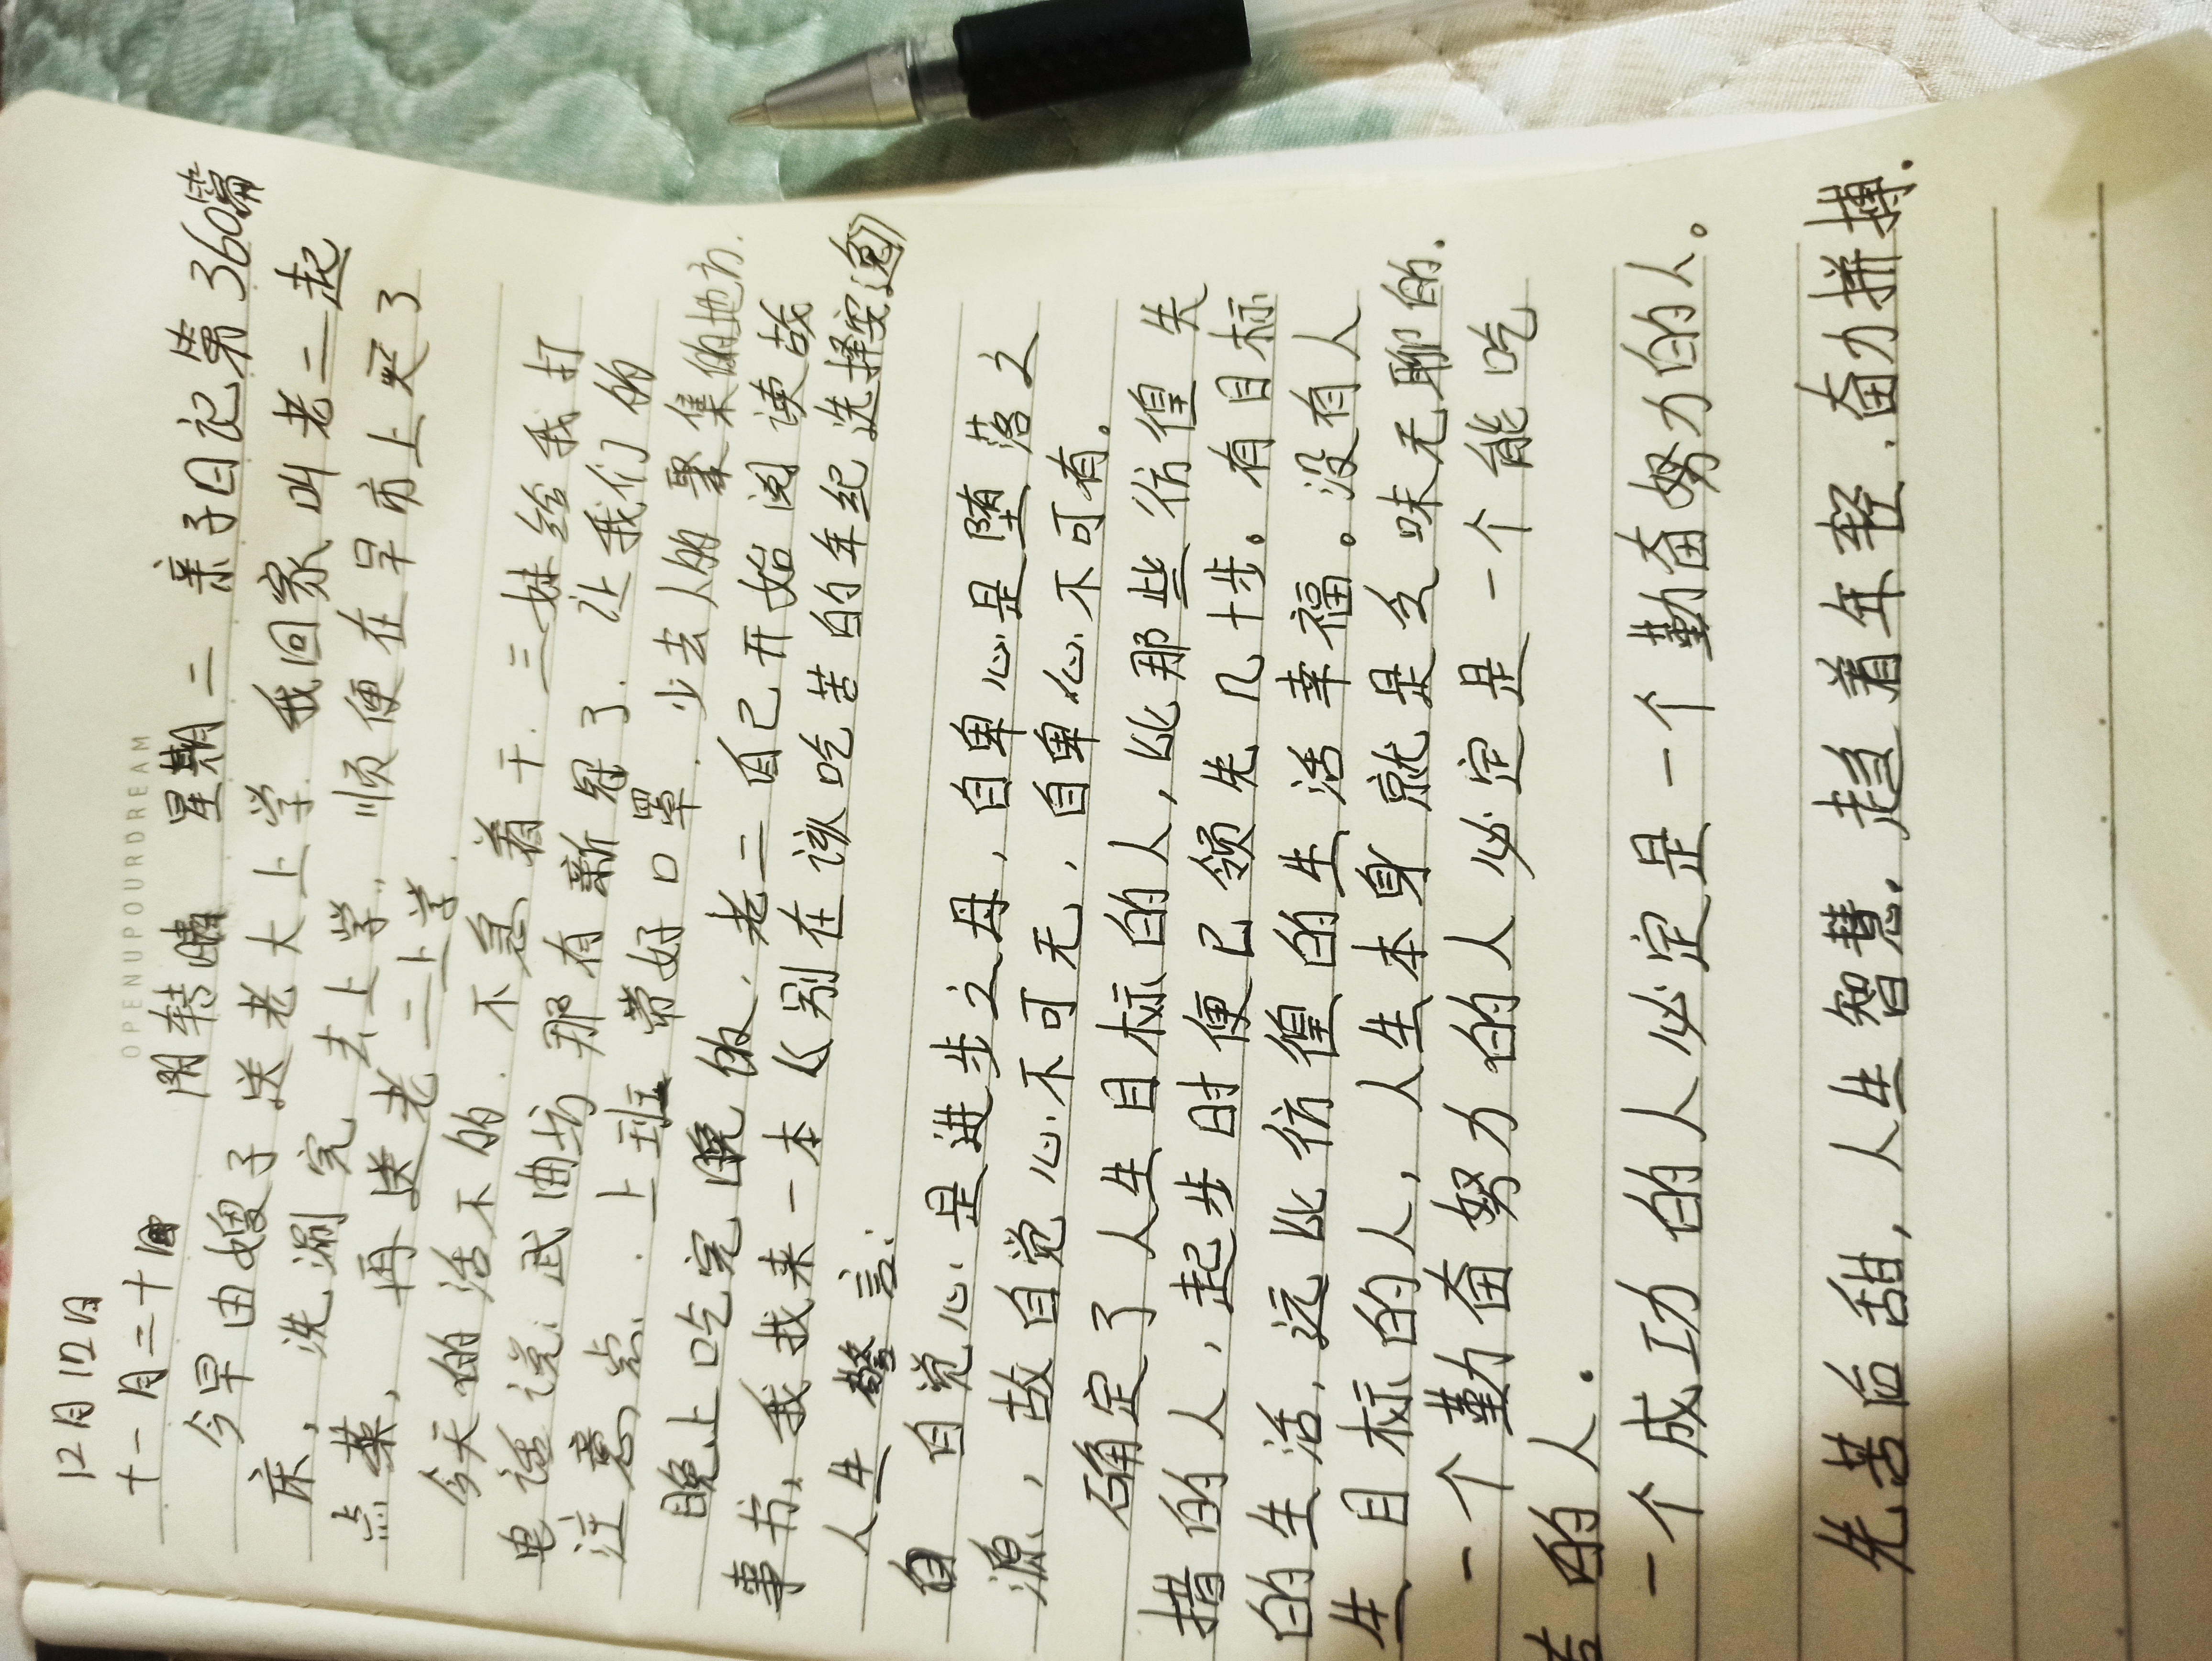 12月12日
OPENUPOURDREAM
十一月二十日 阴转晴 星期二 亲子日记第360篇
今早由嫂子送老大上学. 我回家叫老二起
床, 洗涮完去上学, 顺便在早市上买了
点菜, 再送老二上学.
今天的活不的. 不急着干. 三妹给我打
电话说: 武曲坊那有新冠了. 让我们的
注意点. 上班带好口罩. 少去人的聚集的地方.
晚上吃完晚饭. 老二自己开始阅读故
事书, 我找来一本《别在该吃苦的年纪选择安逸》
人生警言:
自 自觉心是进步之母, 自卑心是堕落之
源, 故自觉心不可无, 自卑心不可有。
确定了人生目标的人, 比那些彷徨失
措的人, 起步时便已领先几十步。有目标
的生活, 远比彷徨的生活幸福。没有人
生目标的人, 人生本身就是乏味无聊的.
一个勤奋努力的人必定是一个能吃
苦的人.
一个成功的人必定是一个勤奋努力的人。
先苦后甜, 人生智慧. 趁着年轻. 奋力拼搏.